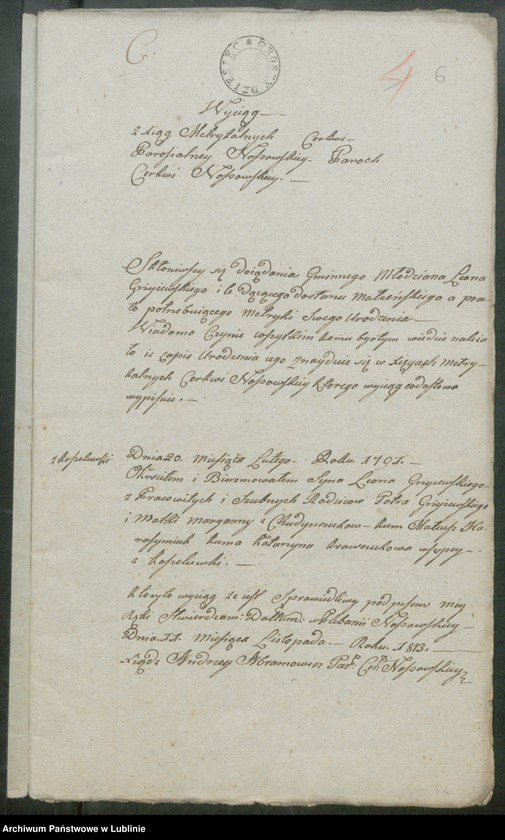 C.
GROSZY DZIESIEC
4 6
Wyciąg
z xiąg Metrykalnych Cerkwi
Parofialney Nossowskiey. Paroch
Cerkwi Nossowskiey.
Skłoniwszy się do żądania Gminnego Młodziana Leona
Gryiewskiego i to dążącego do stanu Małżeńskiego a prze
to potrzebuiącego Metryki Swego Urodzenia
Wiadomo Czynie wszystkim komu by o tym wiedzieć należa
ło iż zapis Urodzenia iego znayduie się w xięgach Metry-
kalnych Cerkwi Nossowskiey którego wyciąg co do słowa
wypisuie. —
z Kopelewki
Dnia 20. Miesiąca Lutego. Roku 1791. —
Okrzciłem i Bierzmowałem Syna Leona Gryiewskiego
z Pracowitych i Szlubnych Rodziców Piotra Gryiewskiego
i Matki Maryanny z kum Mateusz Ha-
rasymiuk kuma Katarzyna Krawczukowa wszyscy
z Kopelewki. —
który to wyciąg że iest Sprawiedliwy podpisem moiey
Ręki Stwierdzam: Dattum: w Plebanii Nossowskiey
Dnia 11. Miesiąca Listopada. — Roku. 1813. —
xiądz Andrzey Abramowicz Par: Cer: Nossowskiey
Archiwum Państwowe w Lublinie